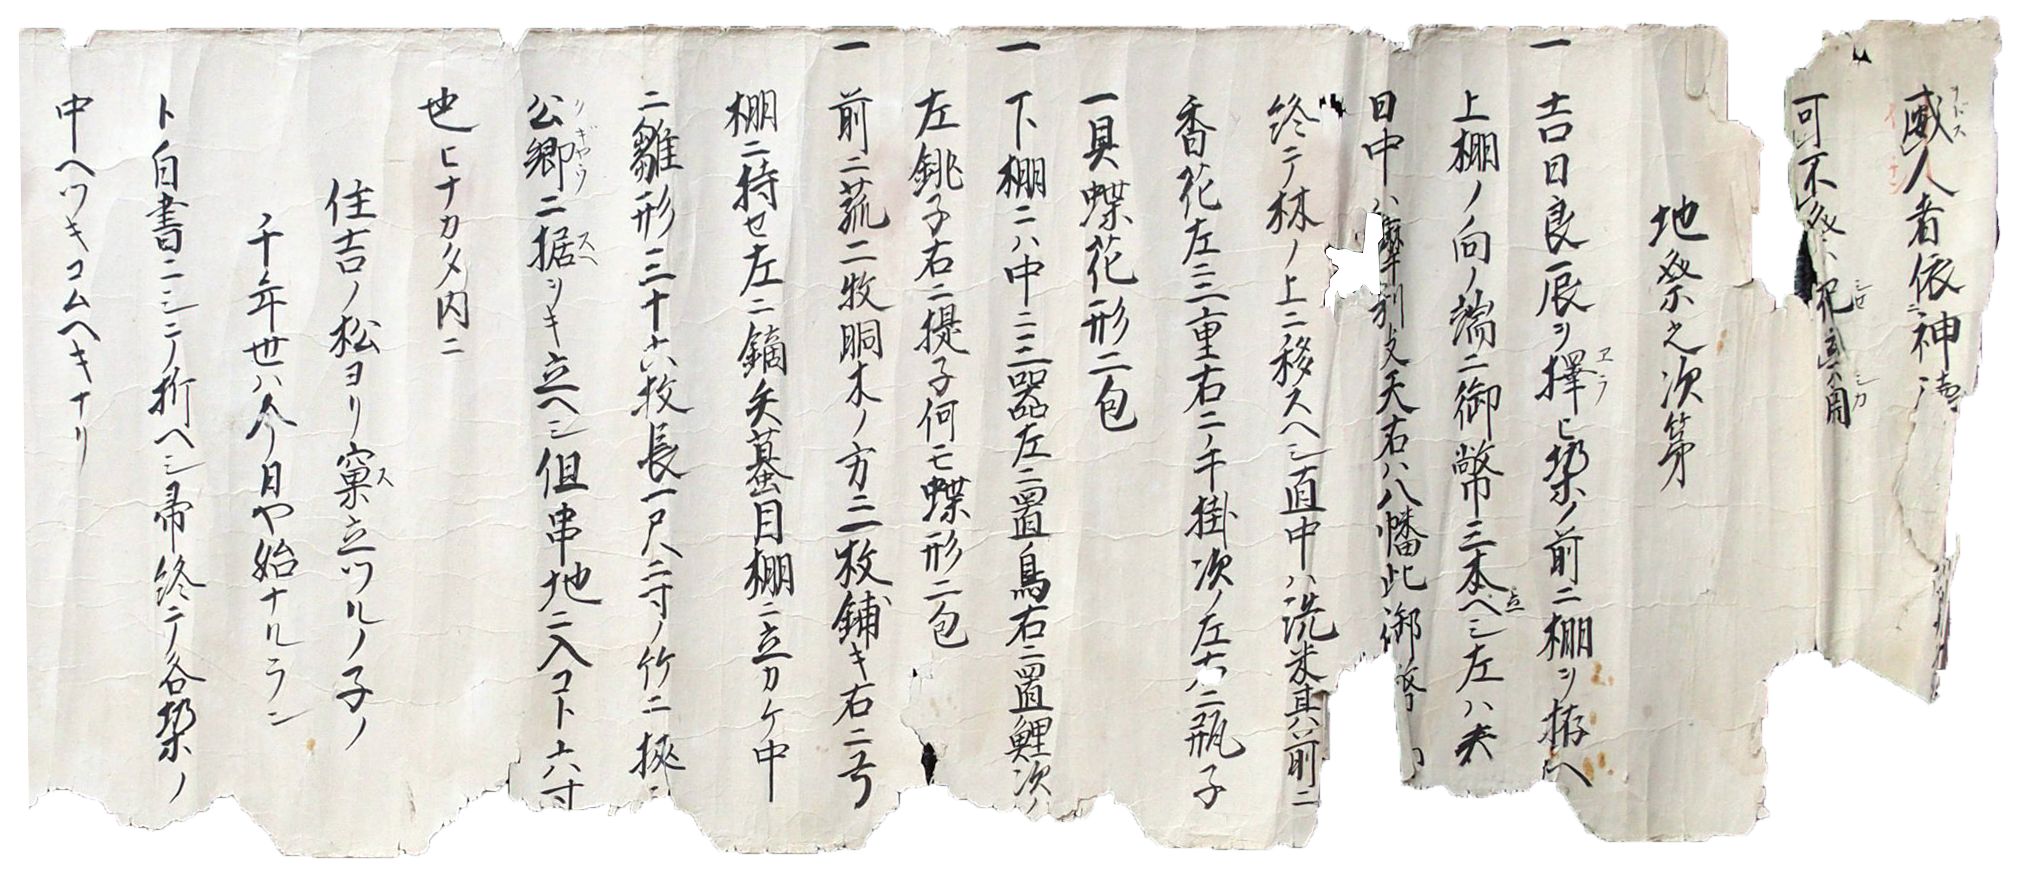 威人者依神
可不
地祭之次第
一吉日良辰ヲ擇ヒ埒ノ前ニ棚ヲ拵ヘ
上棚ノ向ノ端ニ御幣三本立ヘシ左ハ
日中ハ摩利支天右ハ八幡此御幣
終テ林ノ上ニ移スヘシ直中ハ洗米其前ニ
香花左三重右ニノ千掛次ノ左右ニ瓶子
一具蝶花形ニ包
一下棚ニハ中ニ三器左ニ置鳥右ニ置鯉次ノ
左銚子右ニ提子何モ蝶形ニ包
一前ニ菰二牧胴木ノ方ニ二枚鋪キ右ニ弓
棚ニ持セ左ニ鏑矢蟇目棚ニ立カケ中
ニ雛形三十六枚長一尺二寸ノ竹ニ挾ミ
公卿ニ据ヲキ立ヘシ但串地ニ入コト六寸
也ヒナカタ内ニ
住吉ノ松ヨリ窠立ツルノ子ノ
千年世ハ今月や始ナルラン
ト白書ニシテ折ヘシ帚終テ各埒ノ
中ヘツキコムヘキナリ